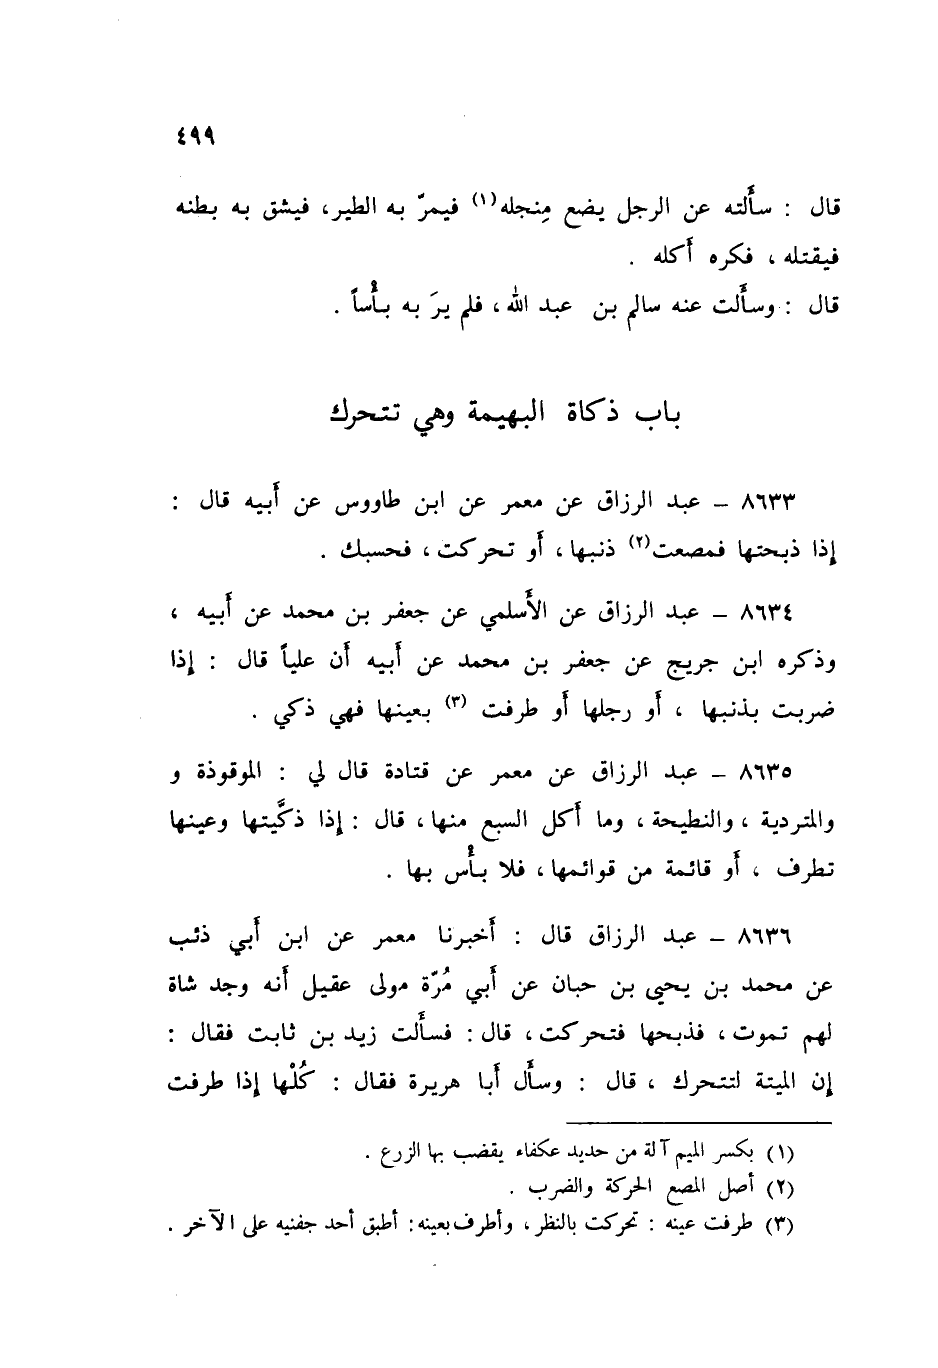 ٤٩٩
قال : سأَلته عن الرجل يضع مِنجله(١) فيمرّ به الطير، فيشق به بطنه
فيقتله ، فكره أَكله .
قال : وسأَلت عنه سالم بن عبد الله ، فلم يرَ به بأْساً .
باب ذكاة البهيمة وهي تتحرك
٨٦٣٣ – عبد الرزاق عن معمر عن ابن طاووس عن أَبيه قال :
إذا ذبحتها فمصعت(٢) ذنبها ، أَو تحركت ، فحسبك .
٨٦٣٤ – عبد الرزاق عن الأَسلمي عن جعفر بن محمد عن أَبيه ،
وذكره ابن جريج عن جعفر بن محمد عن أَبيه أن علياً قال : إذا
ضربت بذنبها ، أَو رجلها أَو طرفت (٣) بعينها فهي ذكي .
٨٦٣٥ – عبد الرزاق عن معمر عن قتادة قال لي : الموقوذة و
والمتردية ، والنطيحة ، وما أَكل السبع منها ، قال : إذا ذكَّيتها وعينها
تطرف ، أَو قائمة من قوائمها ، فلا بأْس بها .
٨٦٣٦ – عبد الرزاق قال : أَخبرنا معمر عن ابن أَبي ذئب
عن محمد بن يحيى بن حبان عن أَبي مُرّة مولى عقيل أَنه وجد شاة
لهم تموت ، فذبحها فتحركت ، قال : فسأَلت زيد بن ثابت فقال :
إن الميتة لتتحرك ، قال : وسأَل أَبا هريرة فقال : كُلْها إذا طرفت
(١) بكسر الميم آلة من حديد عكفاء يقضب بها الزرع .
(٢) أصل المصع الحركة والضرب .
(٣) طرفت عينه : تحركت بالنظر ، وأطرف بعينه : أطبق أحد جفنيه على الآخر .